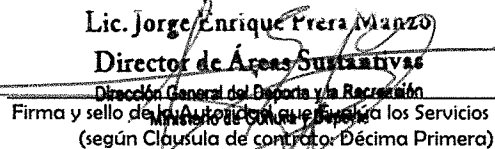 Lic. Jorge Enrique Prera Manzo
Director de Áreas Sustantivas
Dirección General del Deporte y la Recreación
Ministerio de Cultura y Deportes
Firma y sello de la Autoridad que Evalúa los Servicios
(según Clausula de contrato: Décima Primera)